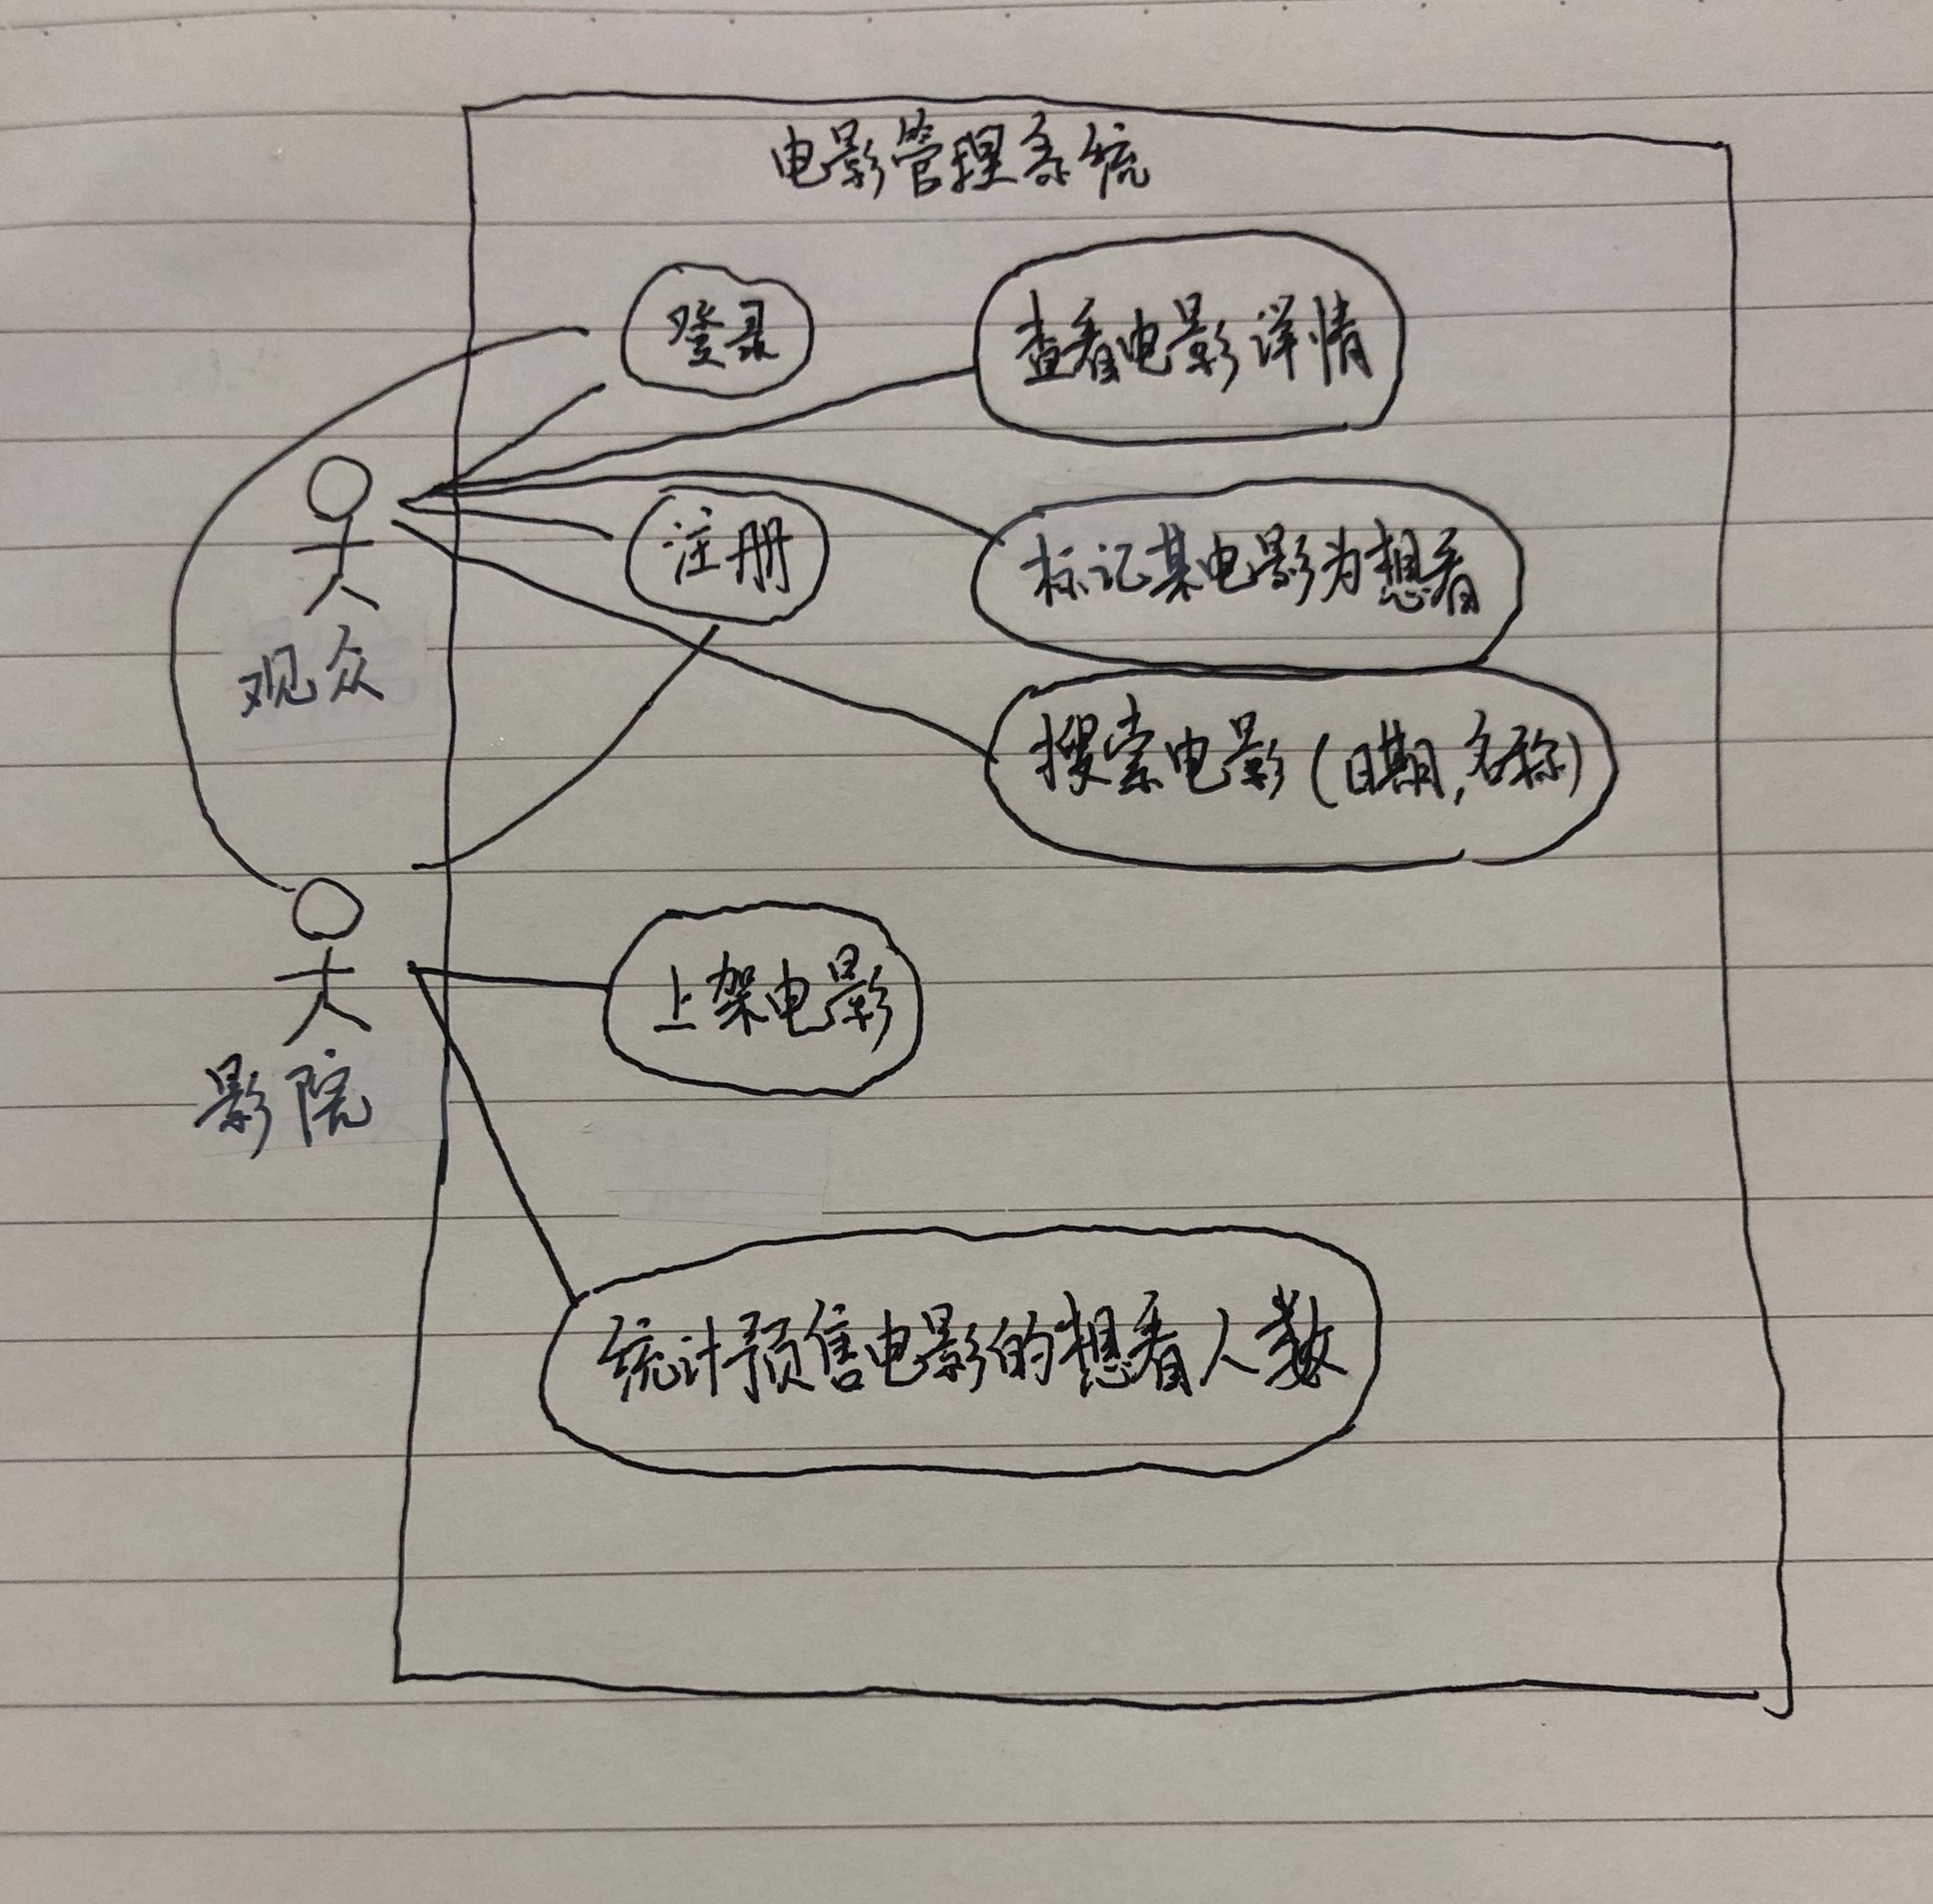 电影管理系统
登录
查看电影详情
注册
标记某电影为想看
观众
搜索电影(日期,名称)
上架电影
影院
统计预售电影的想看人数